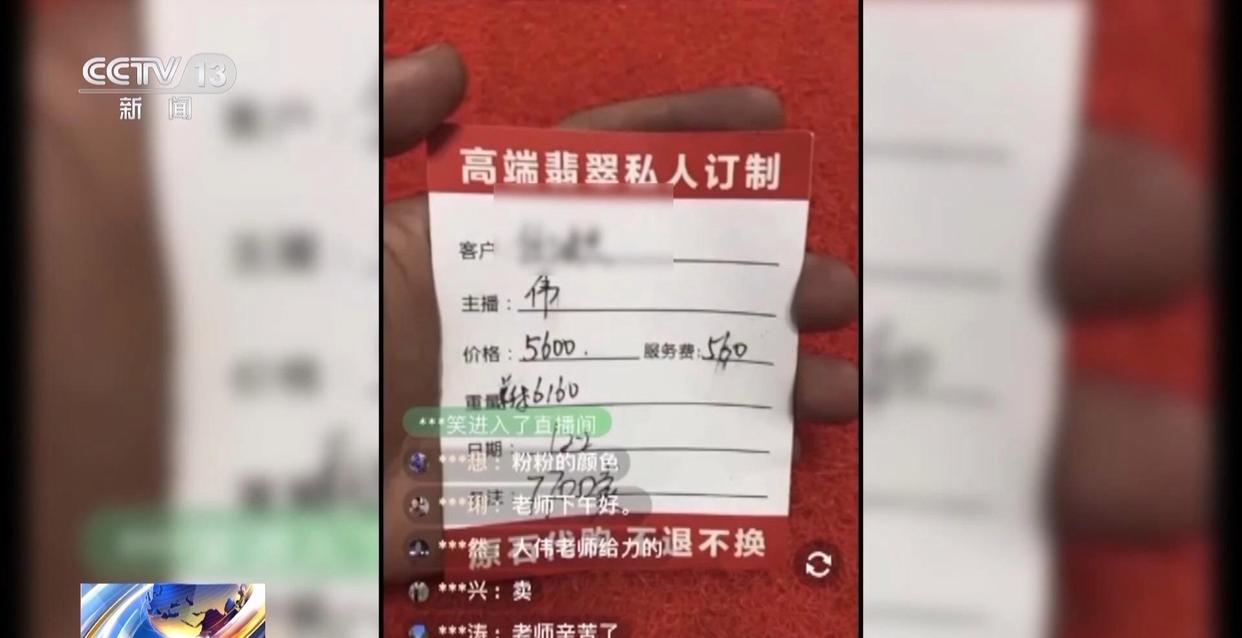 CCTV 13
新闻
高端翡翠私人订制
客户
主播：伟
价格：5600. 服务费:560
重量 6160
***笑进入了直播间
日期：122
***：粉粉的颜色
7700
***琍：老师下午好。
原石代购 不退不换
***然：大伟老师给力的
***兴：卖
***涛：老师辛苦了